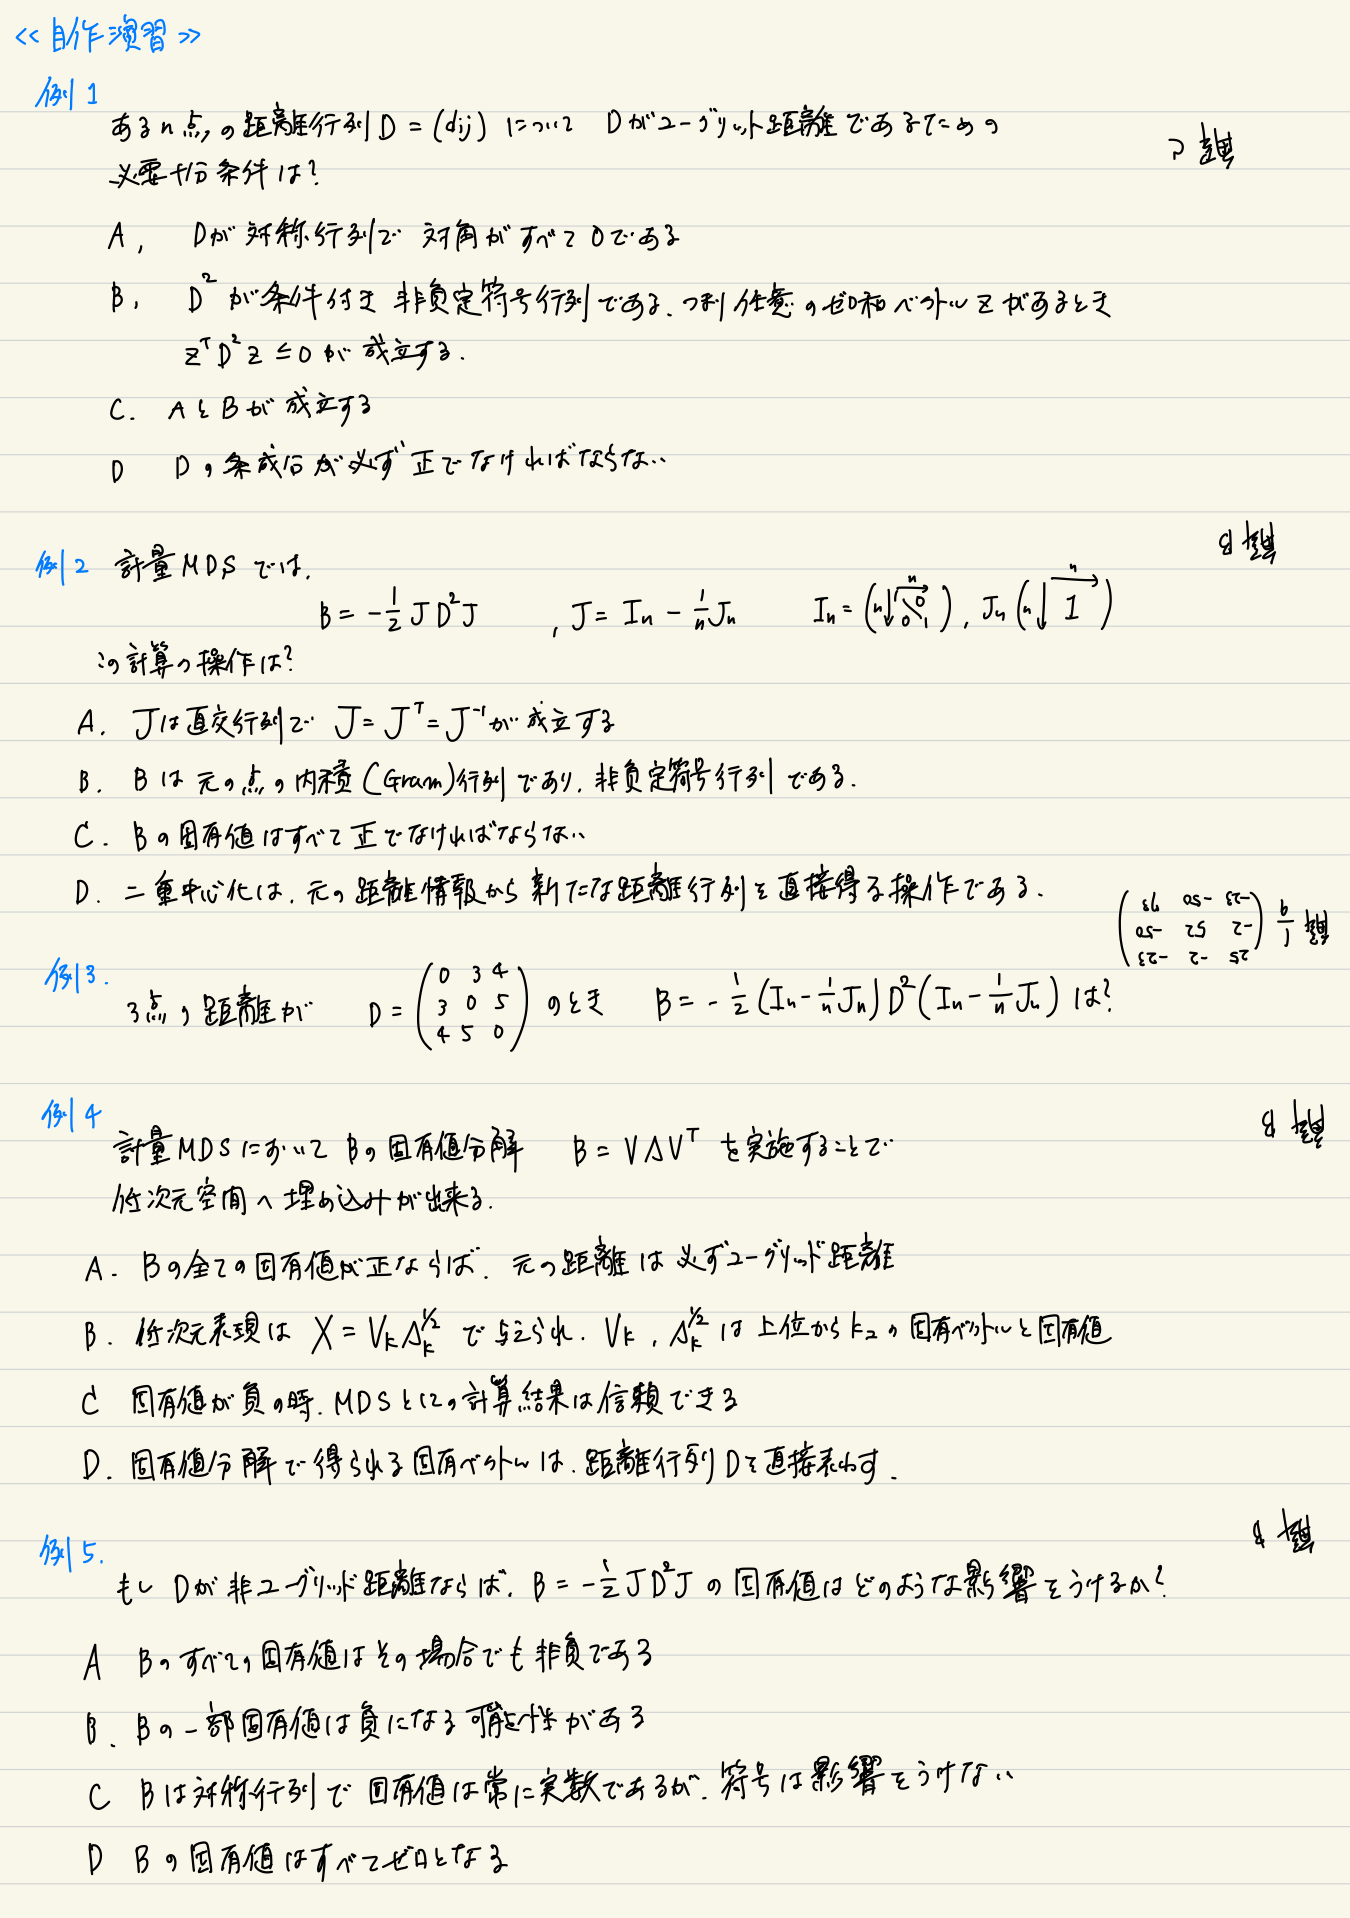 <<自作演習>>
例1
ある n 点の距離行列 D = (dij) について Dがユークリット距離であるための
必要十分条件は?
解 C
A, Dが対称行列で 対角がすべて0である
B, D² が条件付き 非負定符号行列である、つまり任意のゼロ和ベクトル z があるとき
zᵀD²z ≤ 0 が成立する.
C. AとBが成立する
D Dの各成分が必ず正でなければならない
例2 計量MDSでは, 解 B
B = -1/2 J D² J , J = In - 1/n Jn In = (n↓ n→ 1 0 0 1), Jn (n↓ n→ 1)
この計算の操作は?
A. Jは直交行列で J = Jᵀ = J⁻¹ が成立する
B. Bは元の点の内積(Gram)行列であり, 非負定符号行列である.
C. Bの固有値はすべて正でなければならない
D. 二重中心化は, 元の距離情報から新たな距離行列を直接得る操作である.
解 1/9 (25 -2 -23
-2 52 -50
-23 -50 73)
例3.
3点の距離が D = (0 3 4
3 0 5
4 5 0) のとき B = -1/2 (In - 1/n Jn) D² (In - 1/n Jn) は?
例4 解 B
計量MDSにおいて Bの固有値分解 B = VΛVᵀ を実施することで
低次元空間へ埋め込みが出来る.
A. Bの全ての固有値が正ならば, 元の距離は必ずユークリッド距離
B. 低次元表現は X = VkΛk^1/2 で与えられ, Vk, Λk^1/2 は上位からkコの固有ベクトルと固有値
C 固有値が負の時, MDSとしての計算結果は信頼できる
D. 固有値分解で得られる固有ベクトルは, 距離行列Dを直接表わす.
例5. 解 B
もし Dが非ユークリッド距離ならば, B = -1/2 J D² J の固有値はどのような影響をうけるか?
A Bのすべての固有値はその場合でも非負である
B. Bの一部固有値は負になる可能性がある
C Bは対称行列で固有値は常に実数であるが, 符号は影響をうけない
D Bの固有値はすべてゼロとなる